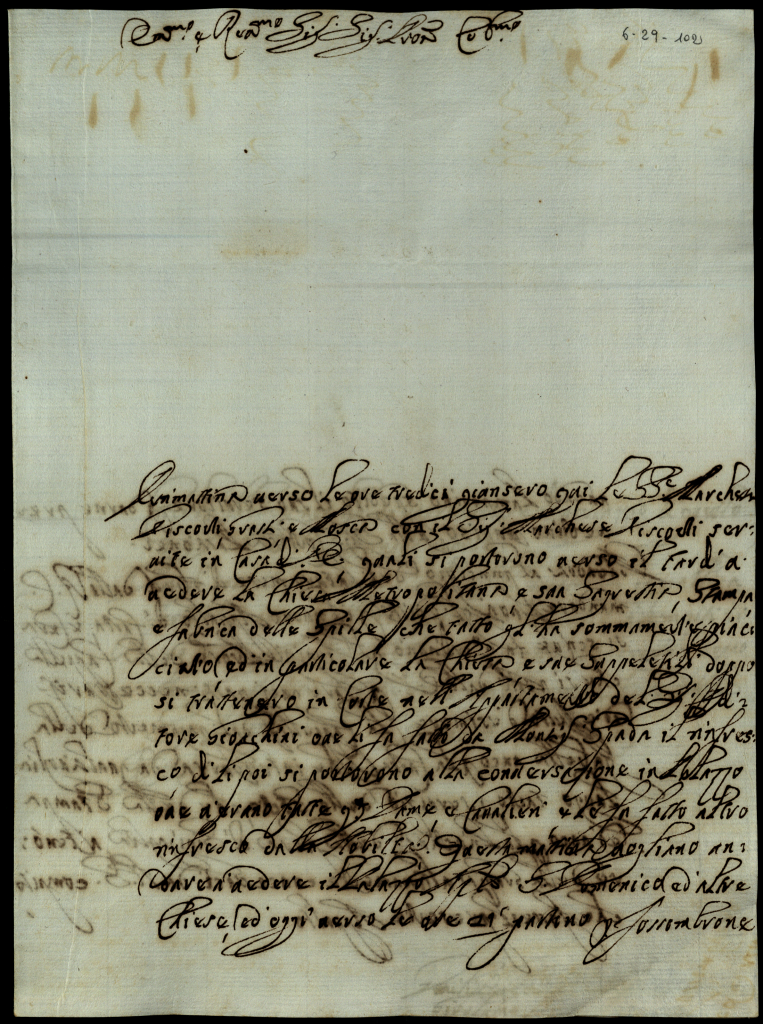 Em.mo e Rev.mo Sig.r Sig.r Pron Col.mo
6-29-102
mattina verso le ore tredici giunsero qui le Marchese
Viscovti e Mosca con il Sig. Marchese Viscovti ser:
vite in Casa di quali si portorono verso il tardi a
vedere la Chiesa Metropolitana e sua Sagrestia, Stampa
e fabrica delle Spille, che tutto gl'ha sommamente piaci:
ciuto, ed in particolare la Chiesa e sue Suppeletili doppo
si trattenero in Corte nell'Appartamento del Sig. Udi:
tore Gioachini ove li fu fatto da Monsig. Spada il rinfres:
co di lì poi si portorono alla conversazione in Palazzo
ove v'erano tutte q.te Dame e Cavalieri e le fu fatto altro
rinfresco dalla Nobiltà. Questa mattina vogliano an:
dare a vedere il Palazzo S. Domenico ed altre
Chiese, ed oggi verso le ore 21 partono p. Fossombrone